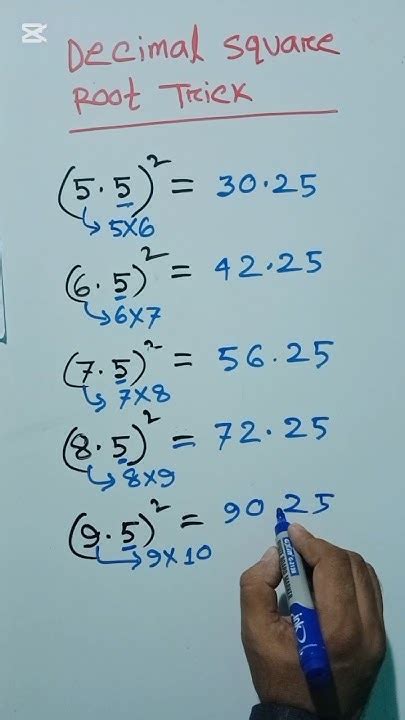 Decimal square
Root Trick
(5.5)² = 30.25
5×6
(6.5)² = 42.25
6×7
(7.5)² = 56.25
7×8
(8.5)² = 72.25
8×9
(9.5)² = 90.25
9×10
ink